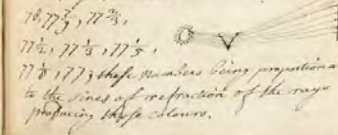 78, 77⅔,
77½, 77⅓, 77⅕,
77⅛, 77, these numbers being proportiona
to the sines of refraction of the rays
producing those colours.